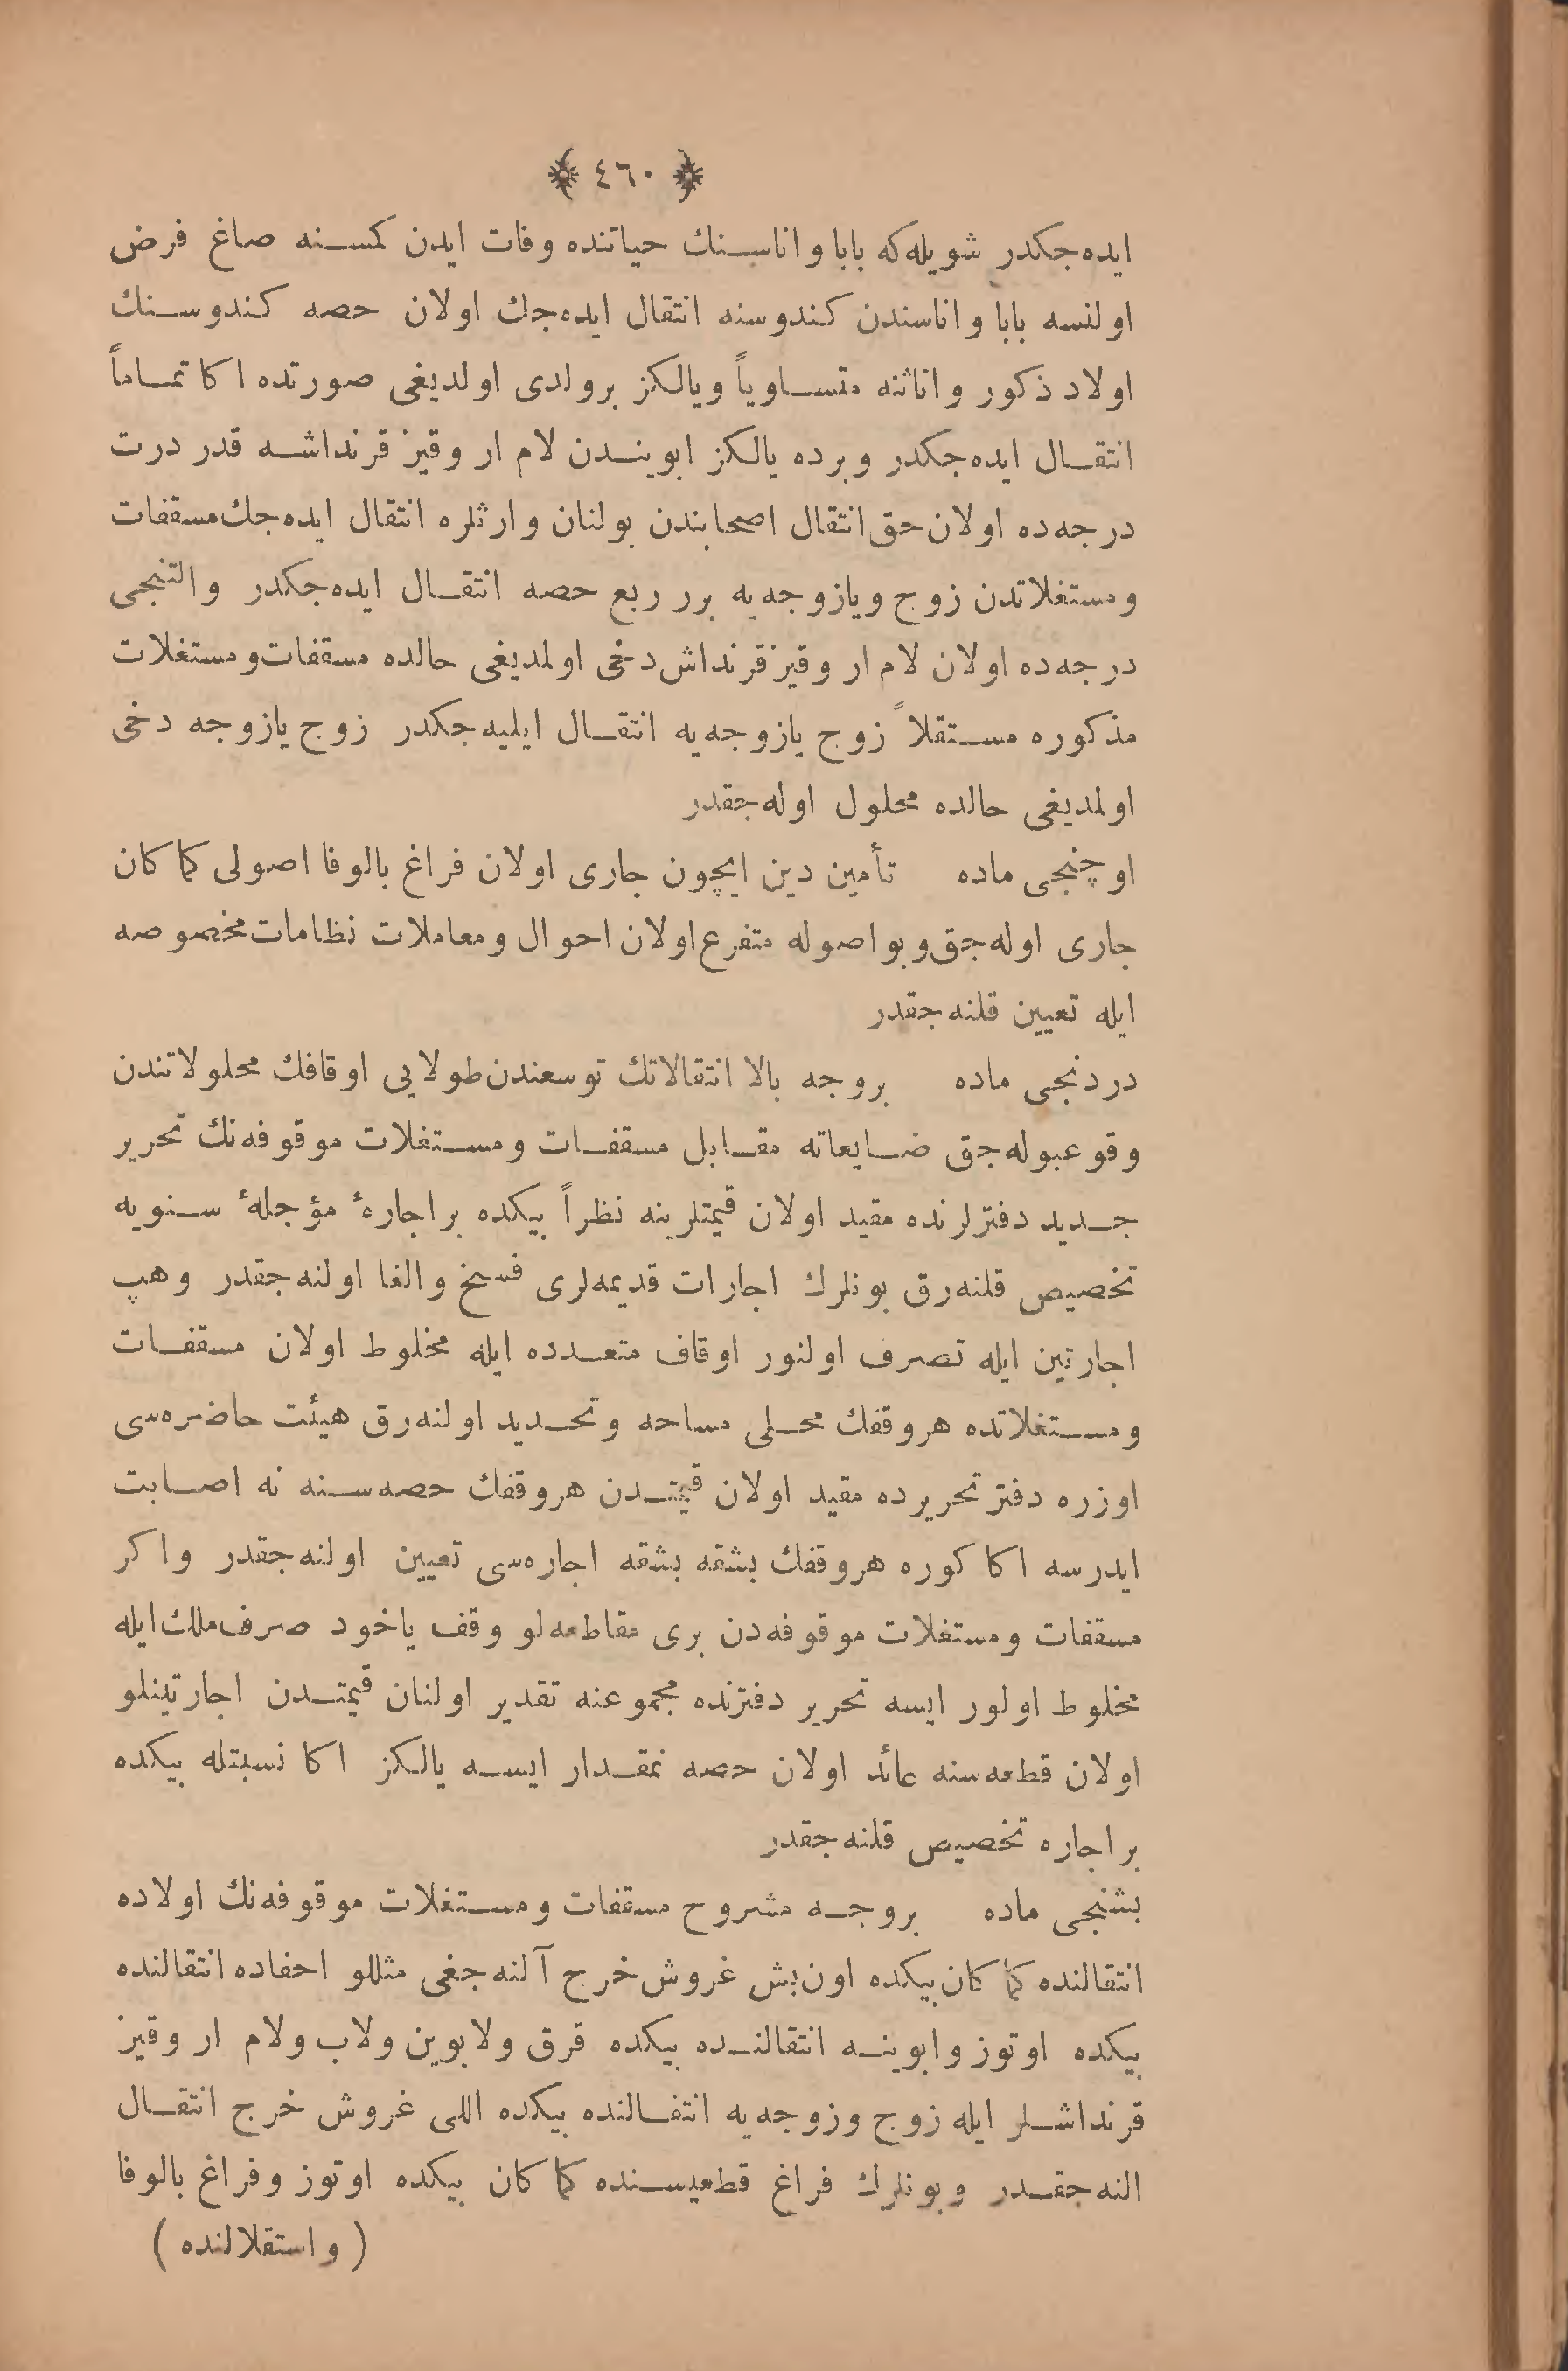 ﴿ ٤٦٠ ﴾
ایده‌جکدر شویله‌که بابا و اناسنك حیاتنده وفات ایدن کمسنه صاغ فرض
اولنسه بابا و اناسندن کندوسنه انتقال ایده‌جك اولان حصه کندوسنك
اولاد ذکور و اناثنه متساویاً ویالکز برولدی اولدیغی صورتده اکا تماماً
انتقال ایده‌جکدر وبرده یالکز ابویندن لام ار وقیز قرنداشه قدر درت
درجه‌ده اولان حق انتقال اصحابندن بولنان وارثلره انتقال ایده‌جك مسقفات
ومستغلاتدن زوج ویازوجه‌یه برر ربع حصه انتقال ایده‌جکدر والتنجی
درجه‌ده اولان لام ار وقیز قرنداش دخی اولمدیغی حالده مسقفات ومستغلات
مذکوره مستقلاً زوج یازوجه‌یه انتقال ایلیه‌جکدر زوج یازوجه دخی
اولمدیغی حالده محلول اوله‌جقدر
اوچنجی ماده تأمین دین ایچون جاری اولان فراغ بالوفا اصولی کماکان
جاری اوله‌جق وبو اصوله متفرع اولان احوال ومعاملات نظامات مخصوصه
ایله تعیین قلنه‌جقدر
دردنجی ماده بروجه بالا انتقالاتك توسعندن طولایی اوقافك محلولاتندن
وقوعبوله‌جق ضایعاته مقابل مسقفات ومستغلات موقوفه‌نك تحریر
جدید دفترلرنده مقید اولان قیمتلرینه نظراً بیکده بر اجارهٔ مؤجلهٔ سنویه
تخصیص قلنه‌رق بونلرك اجارات قدیمه‌لری فسخ والغا اولنه‌جقدر وهپ
اجارتین ایله تصرف اولنور اوقاف متعدده ایله مخلوط اولان مسقفات
ومستغلاتده هروقفك محلی مساحه وتحدید اولنه‌رق هیئت حاضره‌سی
اوزره دفتر تحریرده مقید اولان قیمتدن هروقفك حصه‌سنه نه اصابت
ایدرسه اکا کوره هروقفك بشقه بشقه اجاره‌سی تعیین اولنه‌جقدر واکر
مسقفات ومستغلات موقوفه‌دن بری مقاطعه‌لو وقف یاخود صرف ملك ایله
مخلوط اولور ایسه تحریر دفترنده مجموعنه تقدیر اولنان قیمتدن اجارتینلو
اولان قطعه‌سنه عائد اولان حصه نمقدار ایسه یالکز اکا نسبتله بیکده
بر اجاره تخصیص قلنه‌جقدر
بشنجی ماده بروجه مشروح مسقفات ومستغلات موقوفه‌نك اولاده
انتقالنده کماکان بیکده اون بش غروش خرج آلنه‌جغی مثللو احفاده انتقالنده
بیکده اوتوز وابوینه انتقالنده بیکده قرق ولابوین ولاب ولام ار وقیز
قرنداشلر ایله زوج وزوجه‌یه انتقالنده بیکده اللی غروش خرج انتقال
النه‌جقدر وبونلرك فراغ قطعیسنده کماکان بیکده اوتوز وفراغ بالوفا
( واستقلالنده )